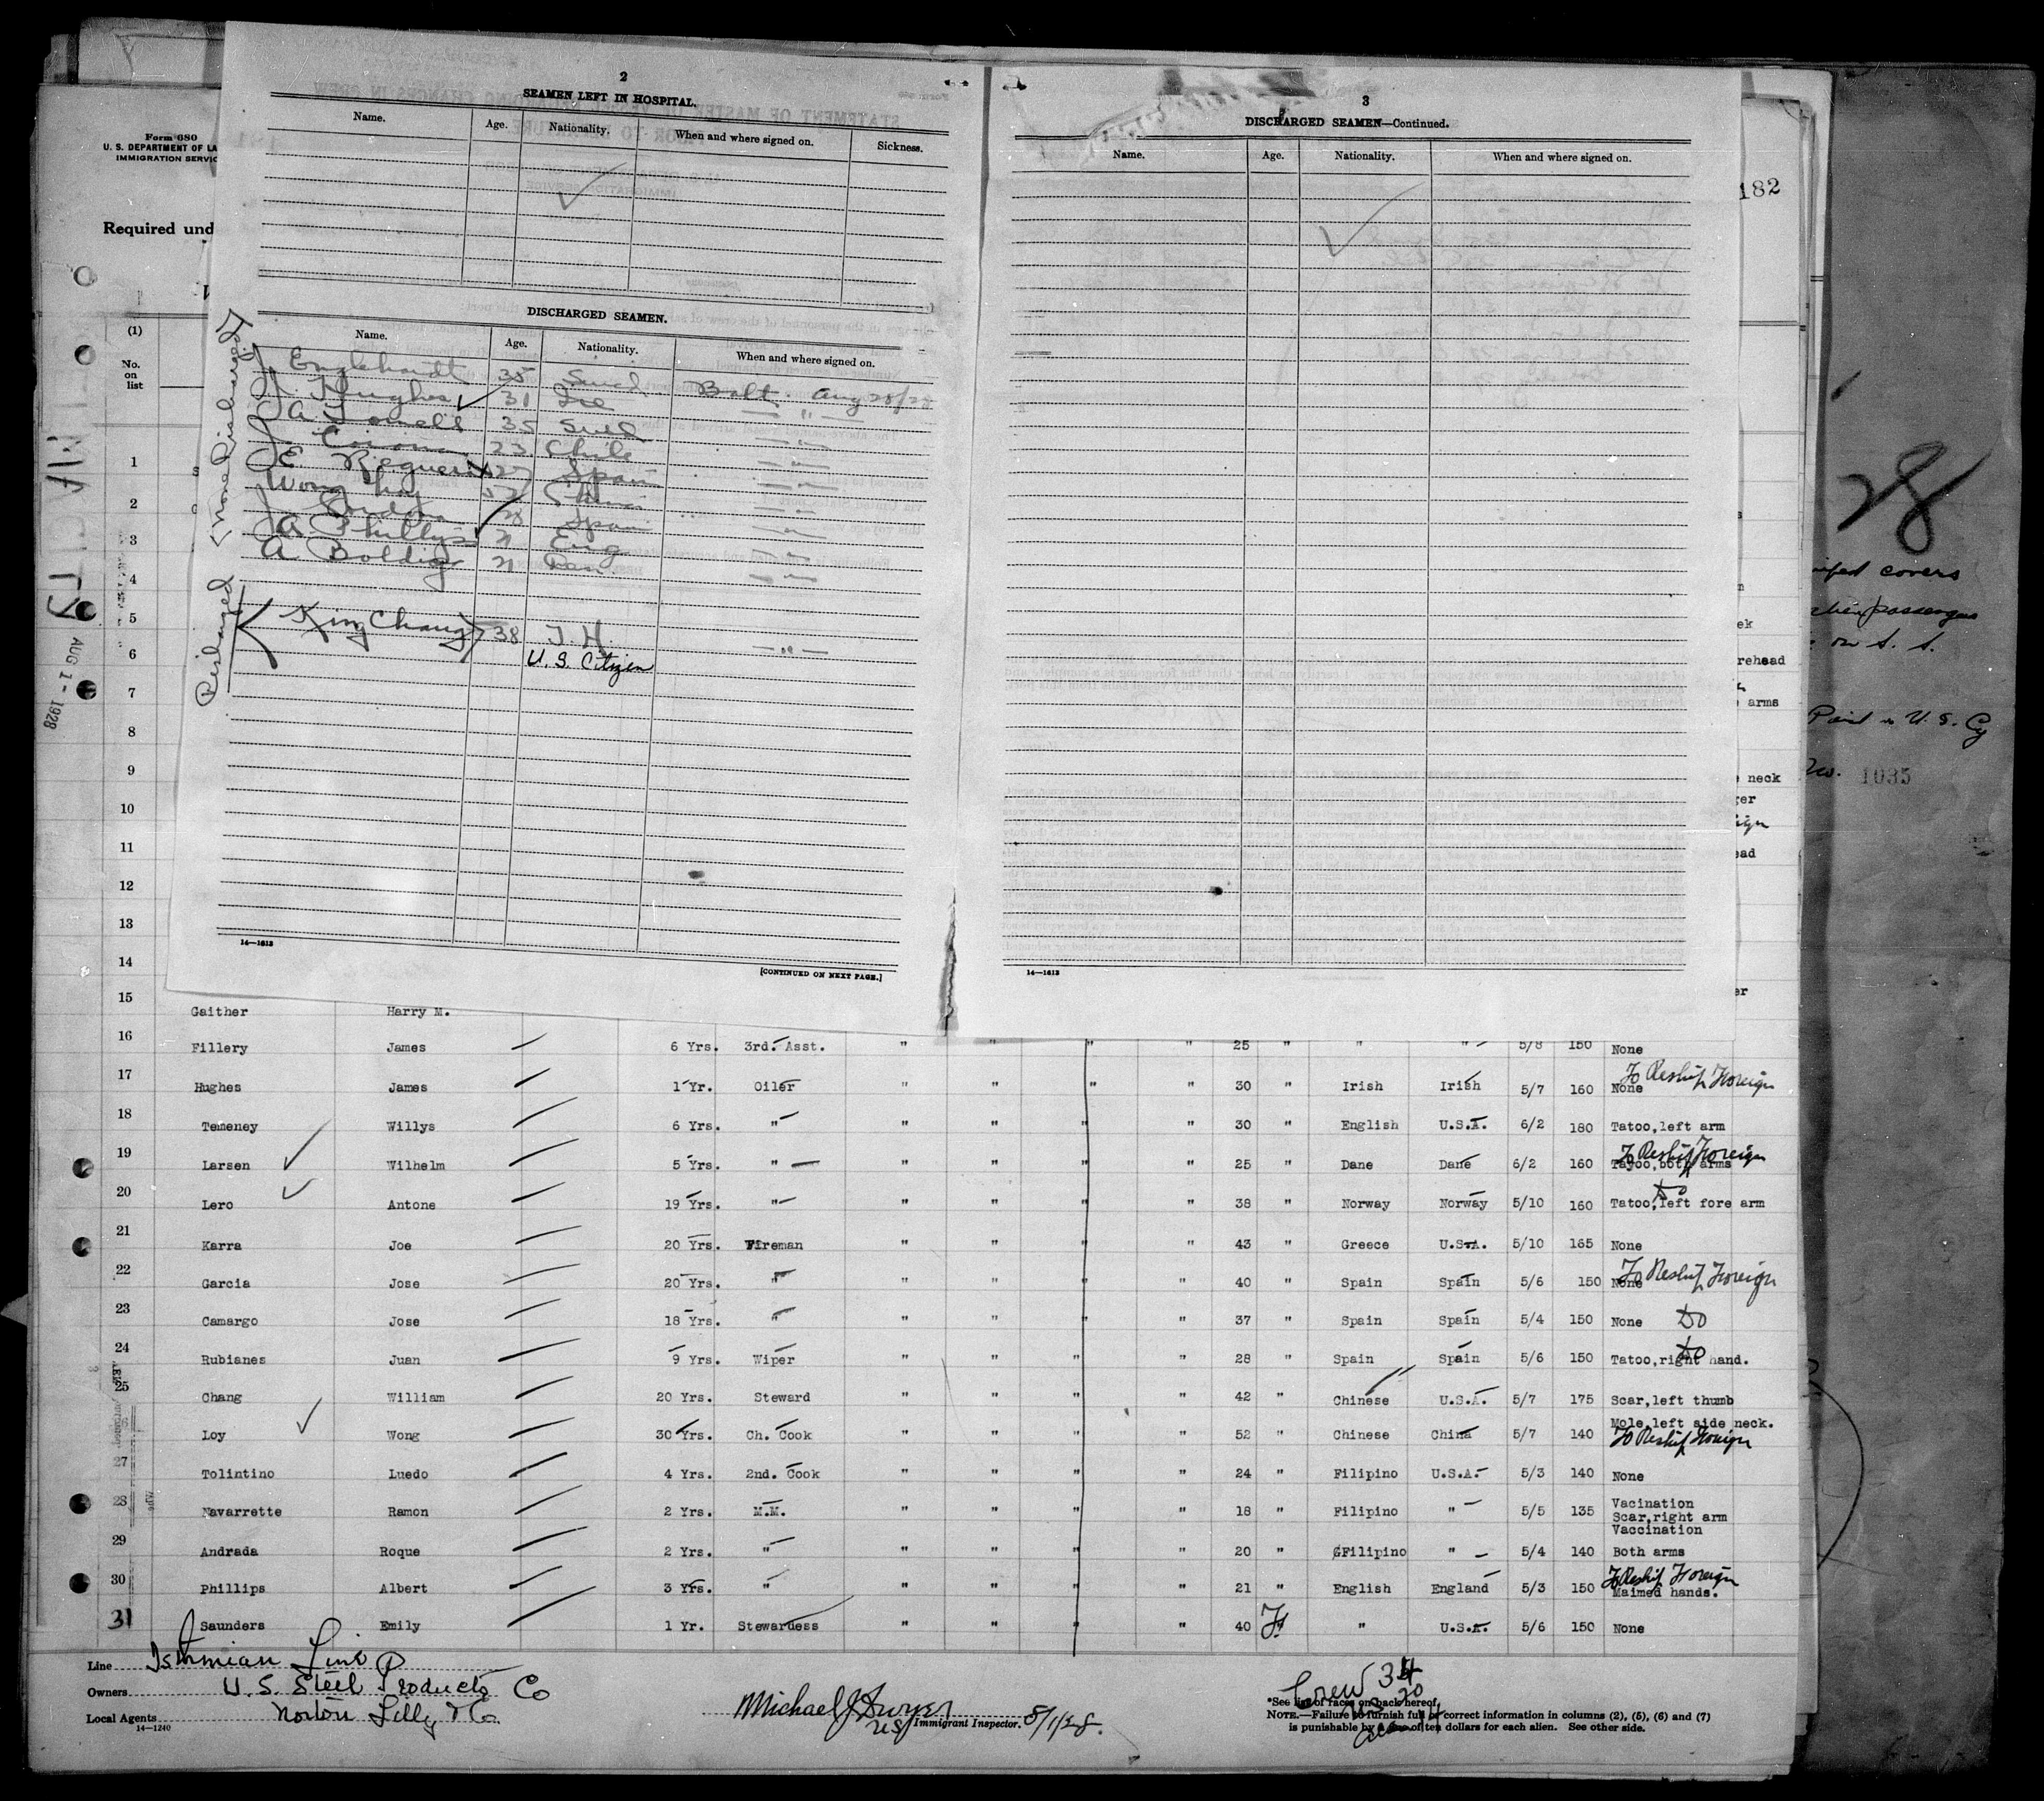 2
SEAMEN LEFT IN HOSPITAL.
Name. Age. Nationality. When and where signed on. Sickness.
DISCHARGED SEAMEN.
Name. Age. Nationality. When and where signed on.
J. Englehardt 35 Swed Balt. Aug 28/28
J. Hughes 31 Ire — " —
A. 35 Swed — " —
J. 23 Chile — " —
E. Regueria 27 Spain — " —
Wong Loy 52 China — " —
J. 28 Spain — " —
A. Phillips 21 Eng — " —
A. Boldig 21 Dan. — " —
None Discharged
Discharged
King Chang 38 T. H. — " —
U. S. Citizen
14—1613
[CONTINUED ON NEXT PAGE.]
3
DISCHARGED SEAMEN—Continued.
Name. Age. Nationality. When and where signed on.
14—1613
182
Form 680
U. S. DEPARTMENT OF LA
IMMIGRATION SERVIC
Required und
(1)
No.
on
list
AUG 1- 1928
28
covers
when passengers
on S. S.
Paid in U. S. Cy
No. 1035
1
2
3
4
5
ek
6
rehead
7
arms
8
9
neck
10
ger
11
ead
12
13
14
15 Gaither Harry M. er
16 Fillery James 6 Yrs. 3rd. Asst. " " " " 25 " " " 5/8 150 None
17 Hughes James 1 Yr. Oiler " " " " 30 " Irish Irish 5/7 160 None To Reship Foreign
18 Temeney Willys 6 Yrs. " " " " " 30 " English U.S.A. 6/2 180 Tatoo,left arm
19 Larsen Wilhelm 5 Yrs. " " " " " 25 " Dane Dane 6/2 160 Tatoo,both arms To Reship Foreign
20 Lero Antone 19 Yrs. " " " " " 38 " Norway Norway 5/10 160 Tatoo,left fore arm Do
21 Karra Joe 20 Yrs. Fireman " " " " 43 " Greece U.S.A. 5/10 165 None
22 Garcia Jose 20 Yrs. " " " " " 40 " Spain Spain 5/6 150 None To Reship Foreign
23 Camargo Jose 18 Yrs. " " " " " 37 " Spain Spain 5/4 150 None Do
24 Rubianes Juan 9 Yrs. Wiper " " " " 28 " Spain Spain 5/6 150 Tatoo,right hand. Do
25 Chang William 20 Yrs. Steward " " " " 42 " Chinese U.S.A. 5/7 175 Scar,left thumb
Loy Wong 30 Yrs. Ch. Cook " " " " 52 " Chinese China 5/7 140 Mole,left side neck. To Reship Foreign
27 Tolintino Luedo 4 Yrs. 2nd. Cook " " " " 24 " Filipino U.S.A. 5/3 140 None
28 Navarrette Ramon 2 Yrs. M.M. " " " " 18 " Filipino " 5/5 135 Vacination Scar,right arm
29 Andrada Roque 2 Yrs. " " " " " 20 " GFilipino " 5/4 140 Vaccination Both arms
30 Phillips Albert 3 Yrs. " " " " " 21 " English England 5/3 150 To Reship Foreign Maimed hands.
31 Saunders Emily 1 Yr. Stewardess " " " " 40 F. " U.S.A. 5/6 150 None
Line Isthmian Line
Owners U. S. Steel Products Co
Local Agents Norton Lilly & Co.
14—1240
Michael J Dwyer
US Immigrant Inspector. 8/1/28.
Crew 34
20
14
*See list of races on back hereof.
NOTE.—Failure to furnish full or correct information in columns (2), (5), (6) and (7)
is punishable by a fine of ten dollars for each alien. See other side.